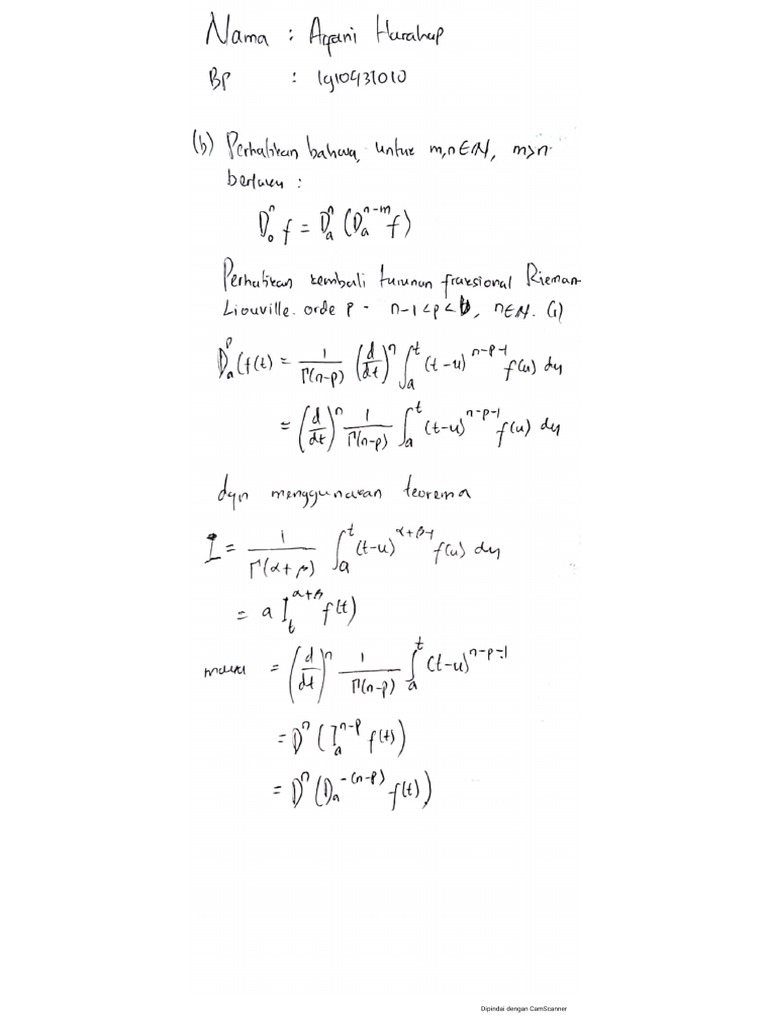 Nama : Aqani Harahap
BP : 1910431010
(b) Perhatikan bahwa, untuk m,n∈ℕ, m>n.
berlaku :
D₀ⁿ f = Dₐⁿ (Dₐⁿ⁻ᵐ f)
Perhatikan kembali turunan fraksional Rieman-
Liouville. orde p - n-1<p<b, n∈ℕ. (1)
Dₐᵖ(f(t) = 1/Γ(n-p) (d/dt)ⁿ ∫ₐᵗ (t-u)ⁿ⁻ᵖ⁻¹ f(u) du
= (d/dt)ⁿ 1/Γ(n-p) ∫ₐᵗ (t-u)ⁿ⁻ᵖ⁻¹ f(u) du
dgn menggunakan teorema
I = 1/Γ(α+β) ∫ₐᵗ (t-u)^(α+β-1) f(u) du
= a I_t^(α+β) f(t)
maka = (d/dt)ⁿ 1/Γ(n-p) ∫ₐᵗ (t-u)ⁿ⁻ᵖ⁻¹
= Dⁿ (Iₐⁿ⁻ᵖ f(t))
= Dⁿ (Dₐ^-(n-p) f(t))
Dipindai dengan CamScanner